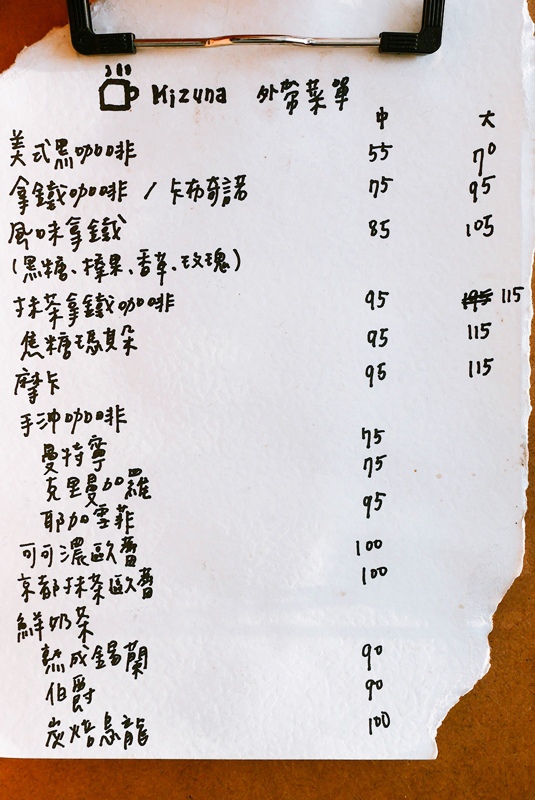 Mizuna 外帶菜單
中 大
美式黑咖啡 55 70
拿鐵咖啡 / 卡布奇諾 75 95
風味拿鐵 85 105
(黑糖、榛果、香草、玫瑰)
抹茶拿鐵咖啡 95 115
焦糖瑪其朵 95 115
摩卡 95 115
手沖咖啡
曼特寧 75
克里曼加羅 75
耶加雪菲 95
可可濃歐蕾 100
京都抹茶歐蕾 100
鮮奶茶
熟成錫蘭 90
伯爵 90
炭焙烏龍 100